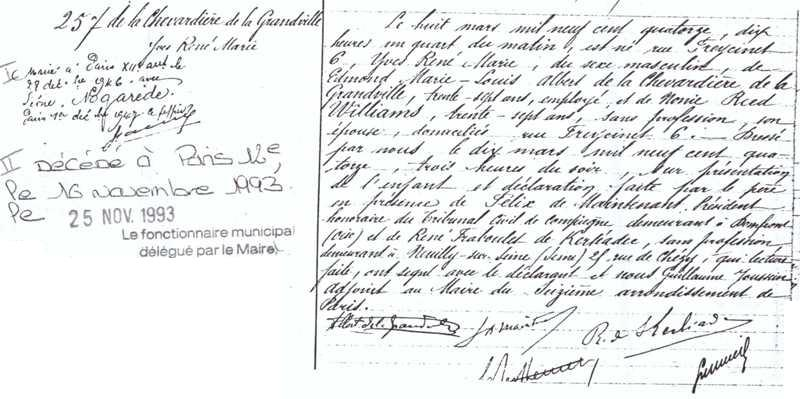 257 de la Chevardière de la Grandville
Yves René Marie
I marié à Paris XII arrt le
28 décembre 1946 avec
Nogarède.
Paris 1er déc 1947
II Décédé à Paris 12e,
le 16 novembre 1993.
le 25 NOV. 1993
Le fonctionnaire municipal
délégué par le Maire
Le huit mars mil neuf cent quatorze, dix
heures un quart du matin, est né rue Freycinet
6, Yves René Marie, du sexe masculin, de
Edmond Marie-Louis Albert de la Chevardière de la
Grandville, trente-sept ans, employé, et de Nonie Reed
Williams, trente-sept ans, sans profession, son
épouse, domiciliés rue Freycinet 6. Dressé
par nous le dix mars mil neuf cent qua-
torze, trois heures du soir, sur présentation
de l'enfant et déclaration faite par le père
en présence de Félix de Maintenant, Président
honoraire du Tribunal Civil de Compiègne demeurant à Domfront
(Oise) et de René Fraboulet de Kerléadec, sans profession,
demeurant à Neuilly-sur-Seine (Seine) 25, rue de Chézy, qui lecture
faite, ont signé avec le déclarant et nous Guillaume
adjoint au Maire du Seizième arrondissement de
Paris.